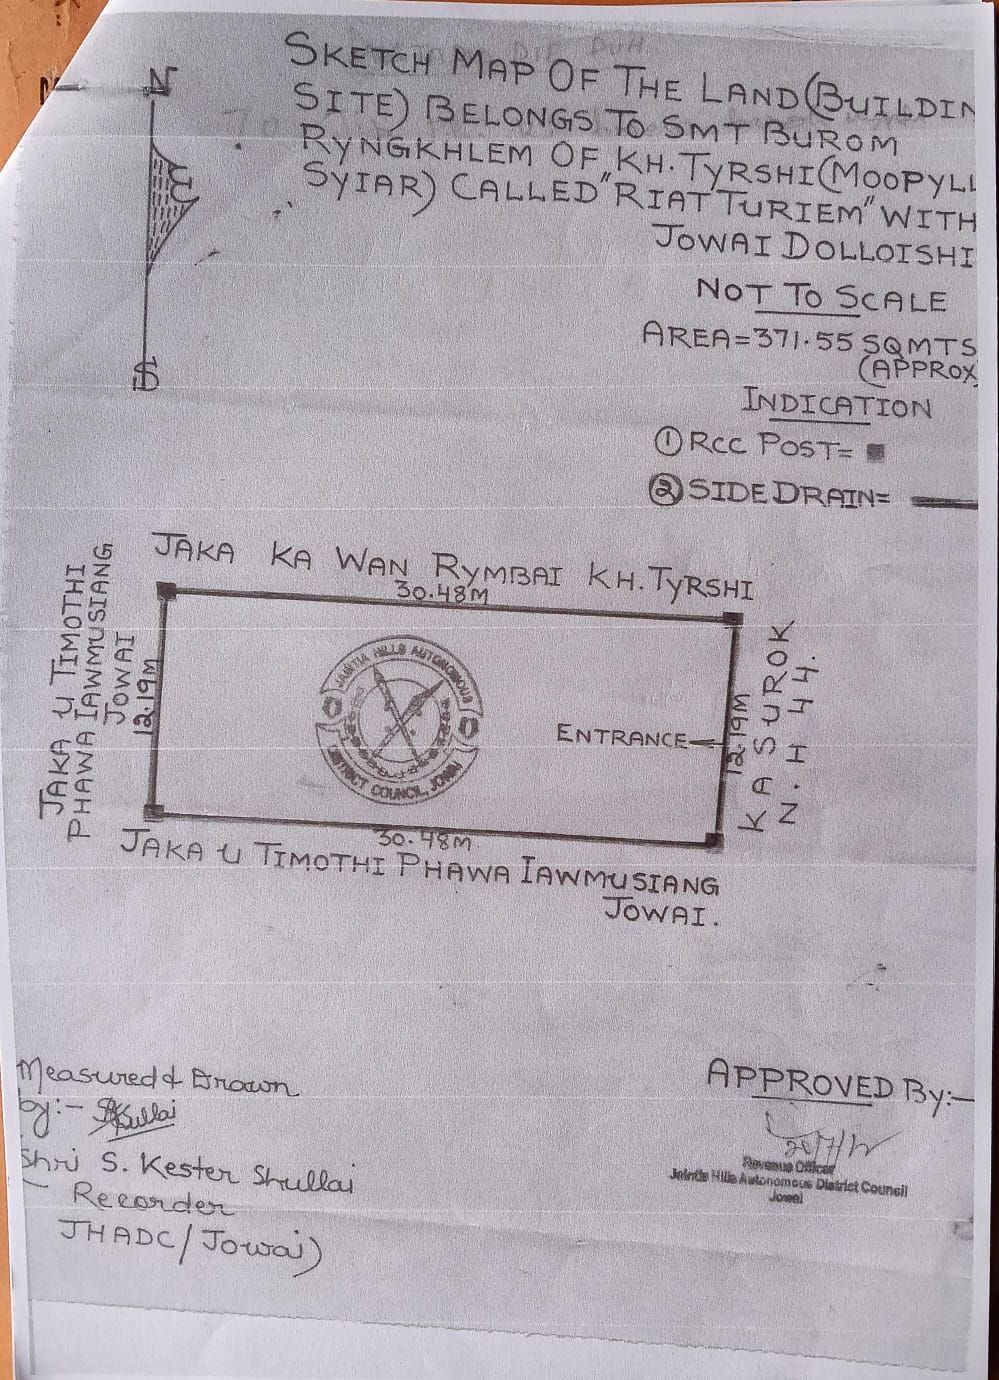 N
SKETCH MAP OF THE LAND (BUILDIN
SITE) BELONGS TO SMT BUROM
RYNGKHLEM OF KH. TYRSHI (MOOPYLL
SYIAR) CALLED "RIAT TURIEM" WITH
JOWAI DOLLOISHI
NOT TO SCALE
AREA=371.55 SQMTS
(APPROX
S
INDICATION
① RCC POST=
② SIDE DRAIN=
JAKA KA WAN RYMBAI KH. TYRSHI
30.48M
JAKA U TIMOTHI
PHAWA IAWMUSIANG
JOWAI
12.19M
JAINTIA HILLS AUTONOMOUS
DISTRICT COUNCIL, JOWAI
ENTRANCE
12.19M
KA SUROK
N.H 44.
30.48M
JAKA U TIMOTHI PHAWA IAWMUSIANG
JOWAI.
Measured & Drawn
by:- Shullai
Shri S. Kester Shullai
Recorder
JHADC/Jowai)
APPROVED By:-
Revenue Officer
Jaintia Hills Autonomous District Council
Jowai